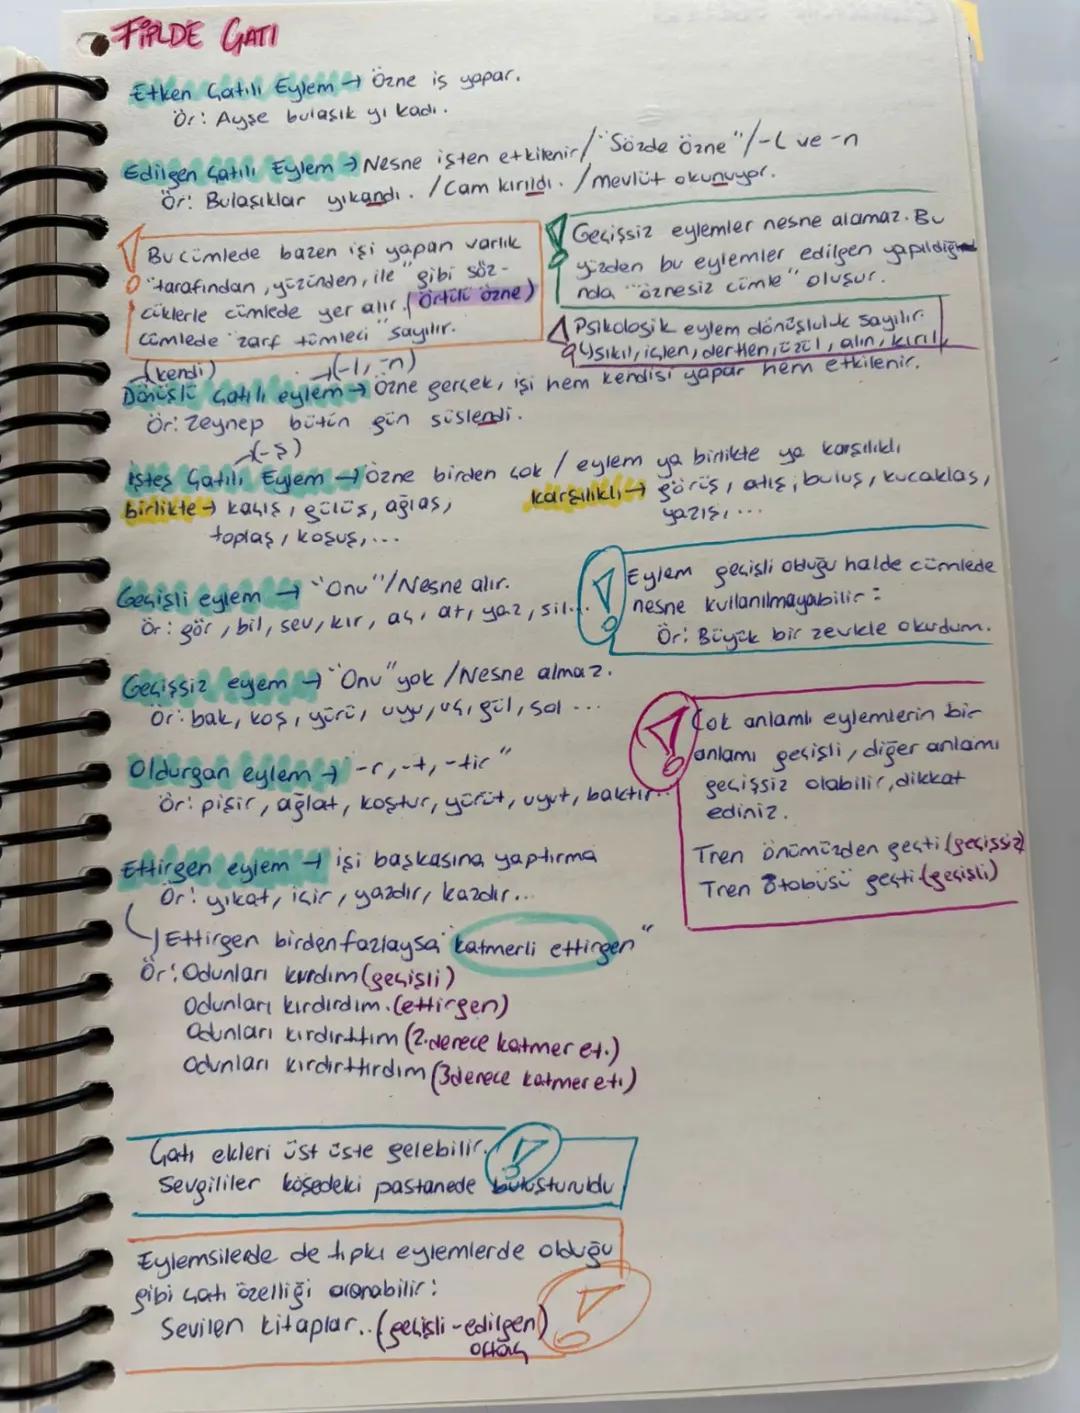 FİİLDE ÇATI
Etken Çatılı Eylem → Özne iş yapar.
Ör: Ayşe bulaşık yıkadı.
Edilgen Çatılı Eylem → Nesne işten etkilenir/"Sözde Özne"/-L ve -n
Ör: Bulaşıklar yıkandı. /Cam kırıldı. /Mevlüt okunuyor.
Bu cümlede bazen işi yapan varlık
"tarafından, yüzünden, ile" gibi söz-
cüklerle cümlede yer alır. (Örtülü özne)
Cümlede "zarf tümleci" sayılır.
Geçişsiz eylemler nesne alamaz. Bu
yüzden bu eylemler edilgen yapıldığı
nda "öznesiz cümle" oluşur.
Psikolojik eylem dönüşlülük sayılır.
↳sıkıl, içlen, dertlen, üzül, alın, kırıl
(kendi) (-l, -n)
Dönüşlü Çatılı eylem → Özne gerçek, işi hem kendisi yapar hem etkilenir.
Ör: Zeynep bütün gün süslendi.
(-ş)
İşteş Çatılı Eylem → Özne birden çok / eylem ya birlikte ya karşılıklı
birlikte → kaçış, gülüş, ağlaş,
toplaş, koşuş,...
karşılıklı → görüş, atış, buluş, kucaklaş,
yazış,...
Geçişli eylem → "Onu"/Nesne alır.
Ör: gör, bil, sev, kır, aç, at, yaz, sil...
Eylem geçişli olduğu halde cümlede
nesne kullanılmayabilir:
Ör: Büyük bir zevkle okudum.
Geçişsiz eyem → "Onu" yok /Nesne almaz.
Ör: bak, koş, yürü, uyu, uç, gül, sol ...
Çok anlamlı eylemlerin bir
anlamı geçişli, diğer anlamı
geçişsiz olabilir, dikkat
ediniz.
Tren önümüzden geçti (geçissiz)
Tren otobüsü geçti (geçişli)
Oldurgan eylem → "-r, -t, -tir"
Ör: pişir, ağlat, koştur, yürüt, uyut, baktır...
Ettirgen eylem → işi başkasına yaptırma
Ör: yıkat, içir, yazdır, kazdır...
↳Ettirgen birden fazlaysa "katmerli ettirgen"
Ör: Odunları kırdım (geçişli)
Odunları kırdırdım. (ettirgen)
Odunları kırdırttım (2.derece katmer et.)
Odunları kırdırttırdım (3derece katmer eti)
Çatı ekleri üst üste gelebilir.
Sevgililer köşedeki pastanede buluşturuldu
Eylemsilerde de tıpkı eylemlerde olduğu
gibi çatı özelliği aranabilir:
Sevilen kitaplar.. (geçişli-edilgen)
ortaç